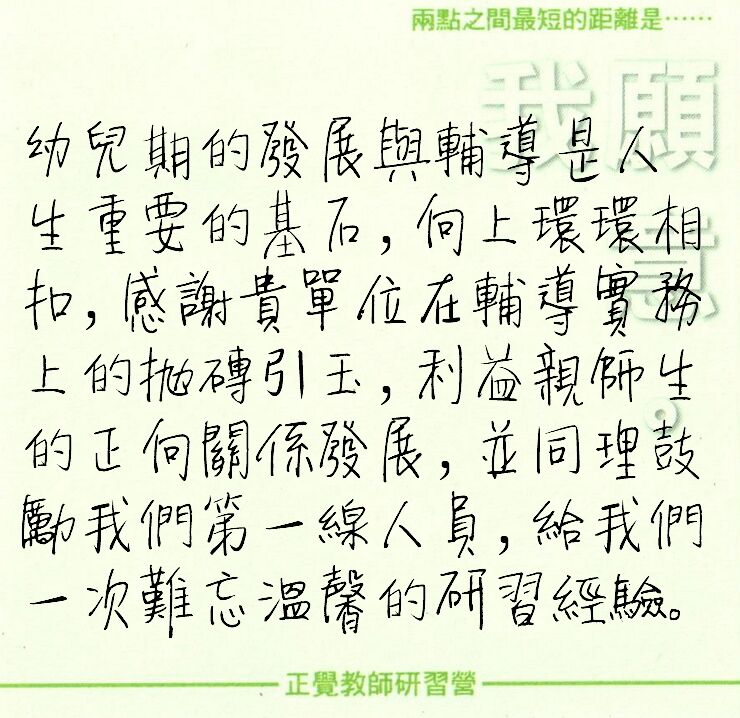 兩點之間最短的距離是……
我願意，
幼兒期的發展與輔導是人
生重要的基石，向上環環相
扣，感謝貴單位在輔導實務
上的拋磚引玉，利益親師生
的正向關係發展，並同理鼓
勵我們第一線人員，給我們
一次難忘溫馨的研習經驗。
正覺教師研習營